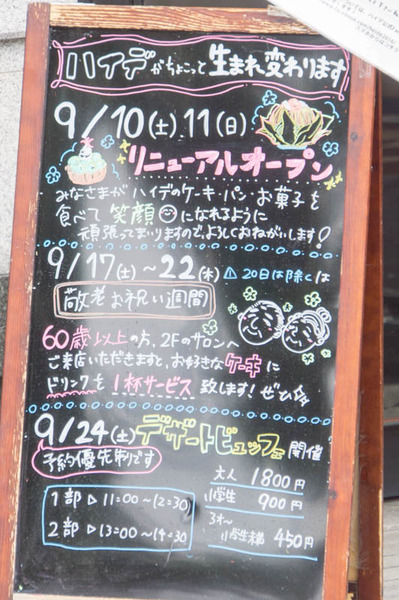 ハイデがちょこっと生まれ変わります
9/10(土)11(日)
リニューアルオープン
みなさまが ハイデのケーキ・パン・お菓子を
食べて 笑顔になれるように
頑張ってまいりますので、よろしくおねがいします!
9/17(土)～22(木) ⚠20日は除くは
敬老お祝い週間
60歳以上の方、2Fのサロンへ
ご来店いただきますと、お好きなケーキに
ドリンクを 1杯サービス 致します!ぜひ
9/24(土)デザートビュッフェ開催
予約優先制です
大人 1800円
小学生 900円
3才～小学生未満 450円
1部▷11:00～12:30
2部▷13:00～14:30